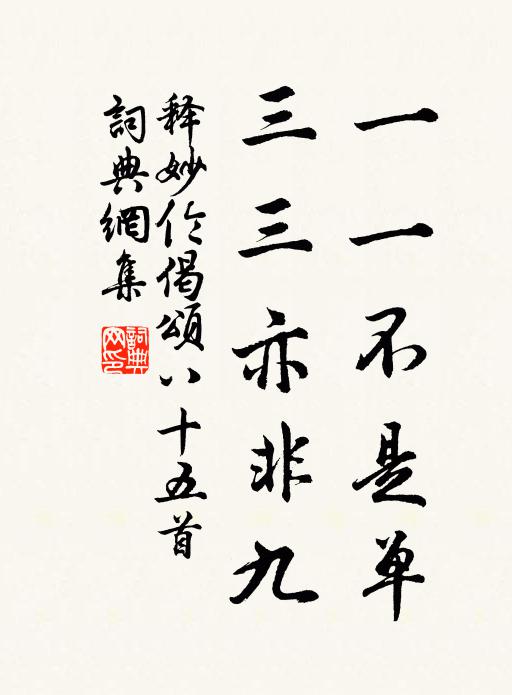 一一不是单
三三亦非九
释妙伦偈頌八十五首
詞典網集
詞典
网印